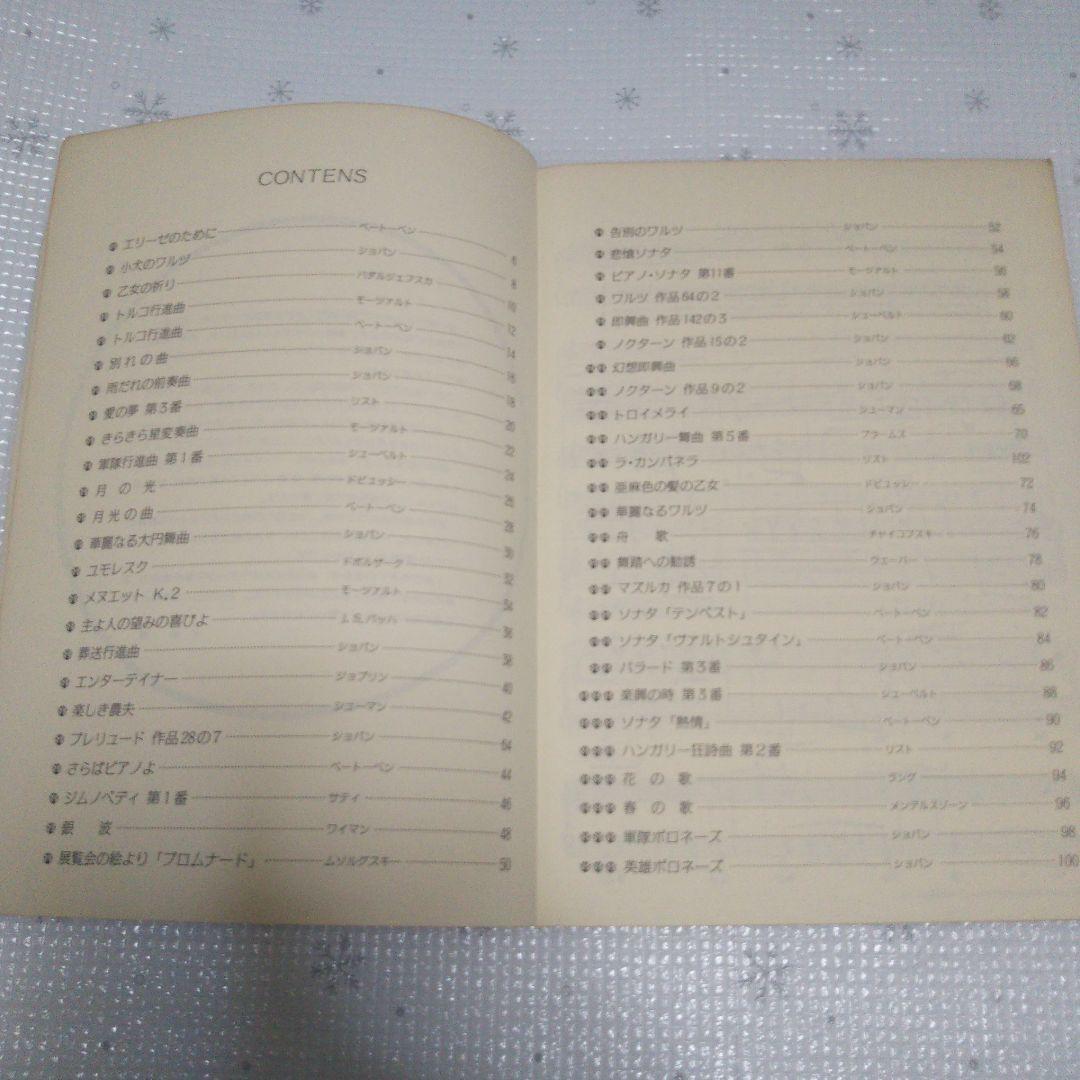 CONTENS
エリーゼのために ベートーベン 6
小犬のワルツ ショパン 8
乙女の祈り バダルジェフスカ 10
トルコ行進曲 モーツァルト 12
トルコ行進曲 ベートーベン 14
別れの曲 ショパン 16
雨だれの前奏曲 ショパン 18
愛の夢 第3番 リスト 20
きらきら星変奏曲 モーツァルト 22
軍隊行進曲 第1番 シューベルト 24
月の光 ドビュッシー 26
月光の曲 ベートーベン 28
華麗なる大円舞曲 ショパン 30
ユモレスク ドボルザーク 32
メヌエット K.2 モーツァルト 34
主よ人の望みの喜びよ J.S.バッハ 36
葬送行進曲 ショパン 38
エンターテイナー ジョプリン 40
楽しき農夫 シューマン 42
プレリュード 作品28の7 ショパン 64
さらばピアノよ ベートーベン 44
ジムノペディ 第1番 サティ 46
銀波 ワイマン 48
展覧会の絵より「プロムナード」 ムソルグスキー 50
告別のワルツ ショパン 52
悲愴ソナタ ベートーベン 54
ピアノ・ソナタ 第11番 モーツァルト 56
ワルツ 作品64の2 ショパン 58
即興曲 作品142の3 シューベルト 60
ノクターン 作品15の2 ショパン 62
幻想即興曲 ショパン 66
ノクターン 作品9の2 ショパン 68
トロイメライ シューマン 65
ハンガリー舞曲 第5番 ブラームス 70
ラ・カンパネラ リスト 102
亜麻色の髪の乙女 ドビュッシー 72
華麗なるワルツ ショパン 74
舟歌 チャイコフスキー 76
舞踏への勧誘 ウェーバー 78
マズルカ 作品7の1 ショパン 80
ソナタ「テンペスト」 ベートーベン 82
ソナタ「ヴァルトシュタイン」 ベートーベン 84
バラード 第3番 ショパン 86
楽興の時 第3番 シューベルト 88
ソナタ「熱情」 ベートーベン 90
ハンガリー狂詩曲 第2番 リスト 92
花の歌 ラング 94
春の歌 メンデルスゾーン 96
軍隊ポロネーズ ショパン 98
英雄ポロネーズ ショパン 100